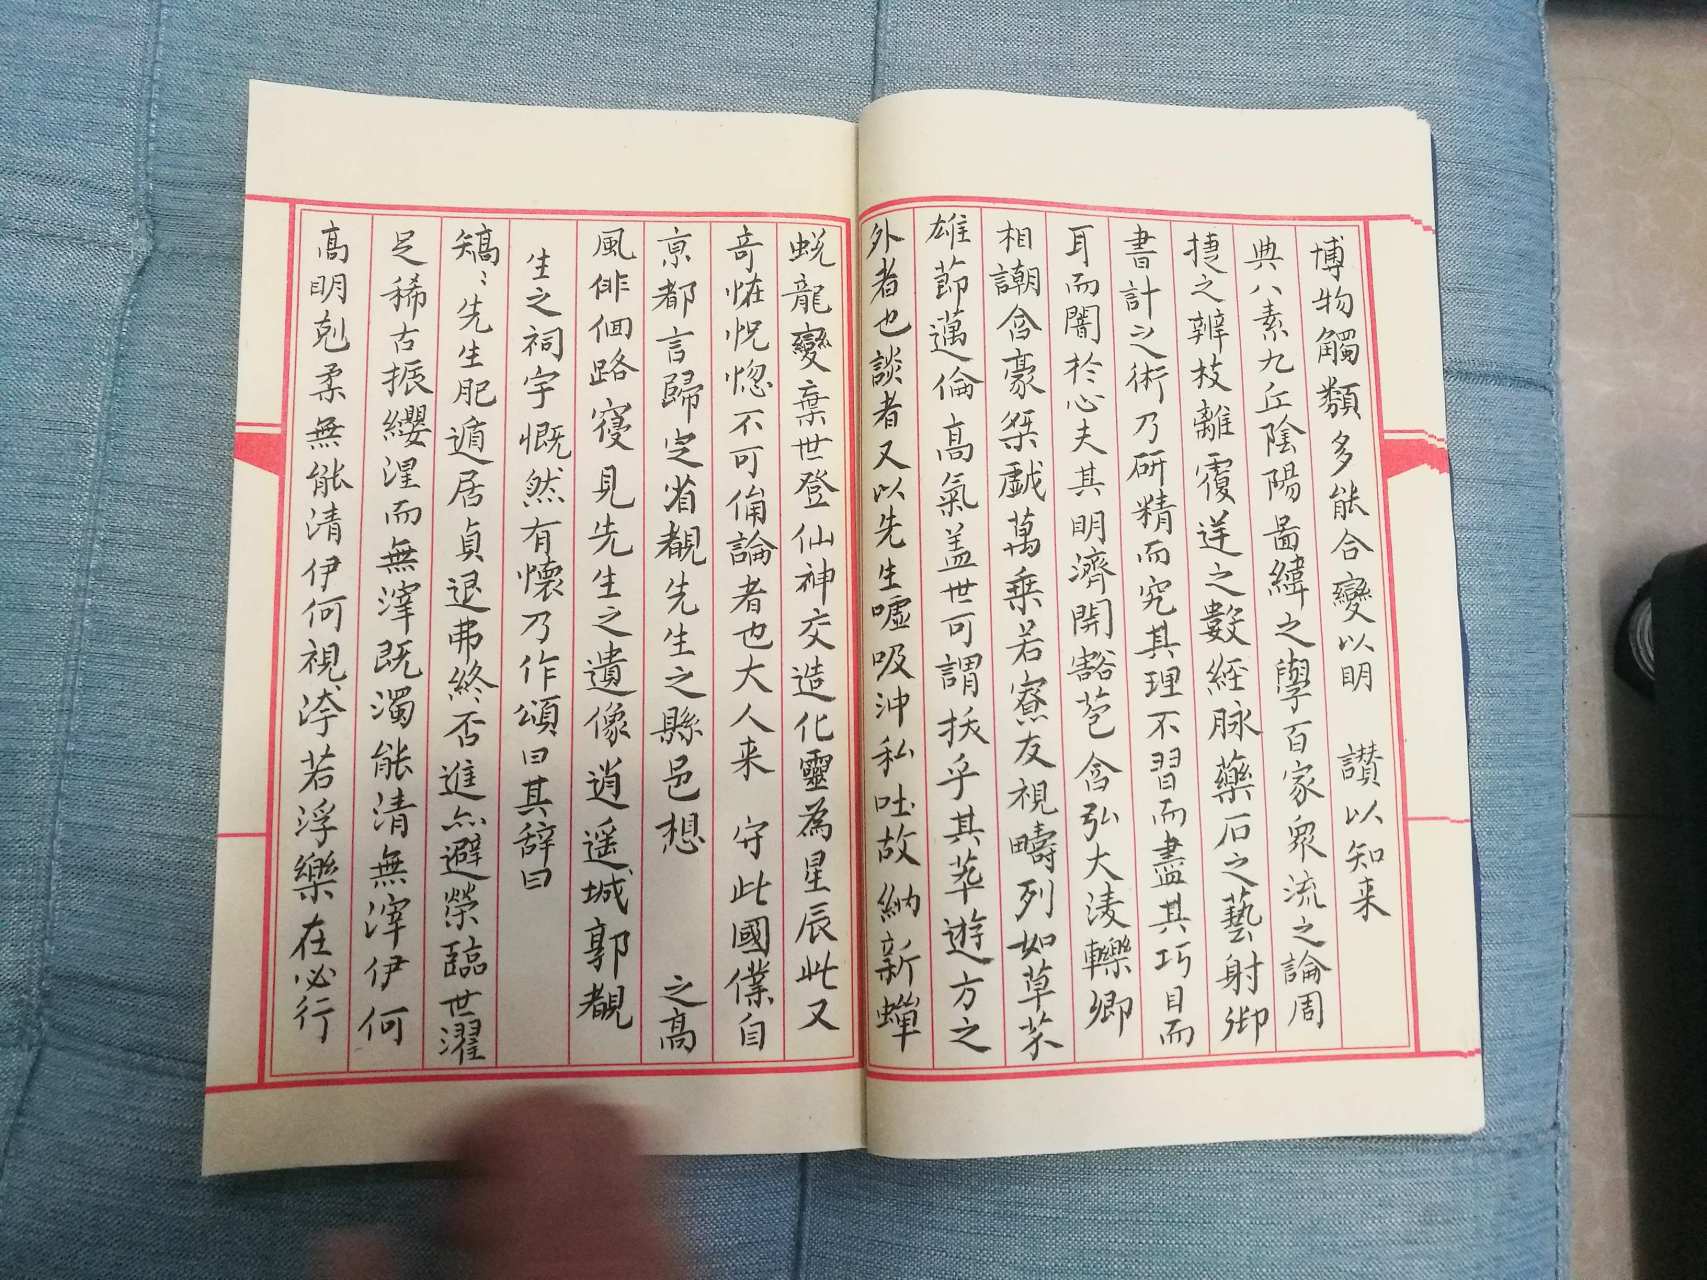 博物觸類多能合變以明 讃以知来
典八素九丘陰陽圖緯之學百家衆流之論周
捷之辨枝離覆逆之數経脉藥石之藝射御
書計之術乃研精而究其理不習而盡其巧目而
耳而闇於心夫其明濟開豁苞含弘大淩轢卿
相謿含豪桀戯萬乗若寮友視疇列如草芥
雄莭邁倫高氣盖世可謂拔乎其萃遊方之
外者也談者又以先生噓吸沖私吐故納新蟬
蛻龍變棄世登仙神交造化靈為星辰此又
竒恠怳惚不可俻論者也大人来 守此國僕自
亰都言歸定省覩先生之縣邑想 之高
風俳佪路寑見先生之遺像逍遥城郭覩
生之祠宇慨然有懷乃作頌曰其辞曰
矯〻先生肥遁居貞退弗終否進亦避榮臨世濯
足稀古振纓涅而無滓既濁能清無滓伊何
高明剋柔無能清伊何視洿若浮樂在必行